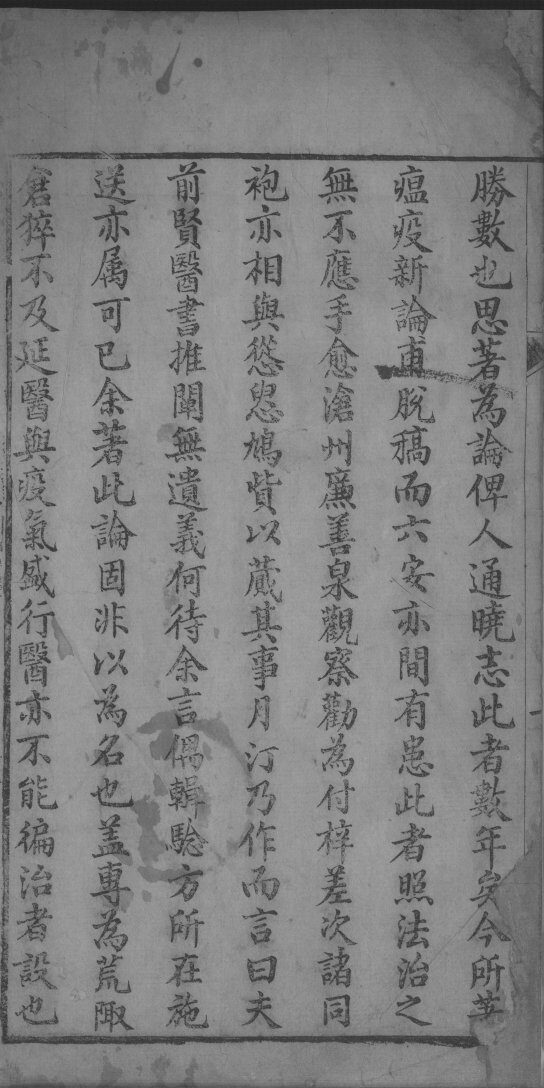 勝數也思著為論俾人通曉志此者數年矣今所著
瘟疫新論甫脫稿而六安亦間有患此者照法治之
無不應手愈滄州廉善泉觀察勸為付梓差次諸同
袍亦相與慫恿鳩貲以蕆其事月汀乃作而言曰夫
前賢醫書推闡無遺義何待余言偶輯驗方所在施
送亦屬可已余著此論固非以為名也盖專為荒陬
倉猝不及延醫與疫氣盛行醫亦不能徧治者設也